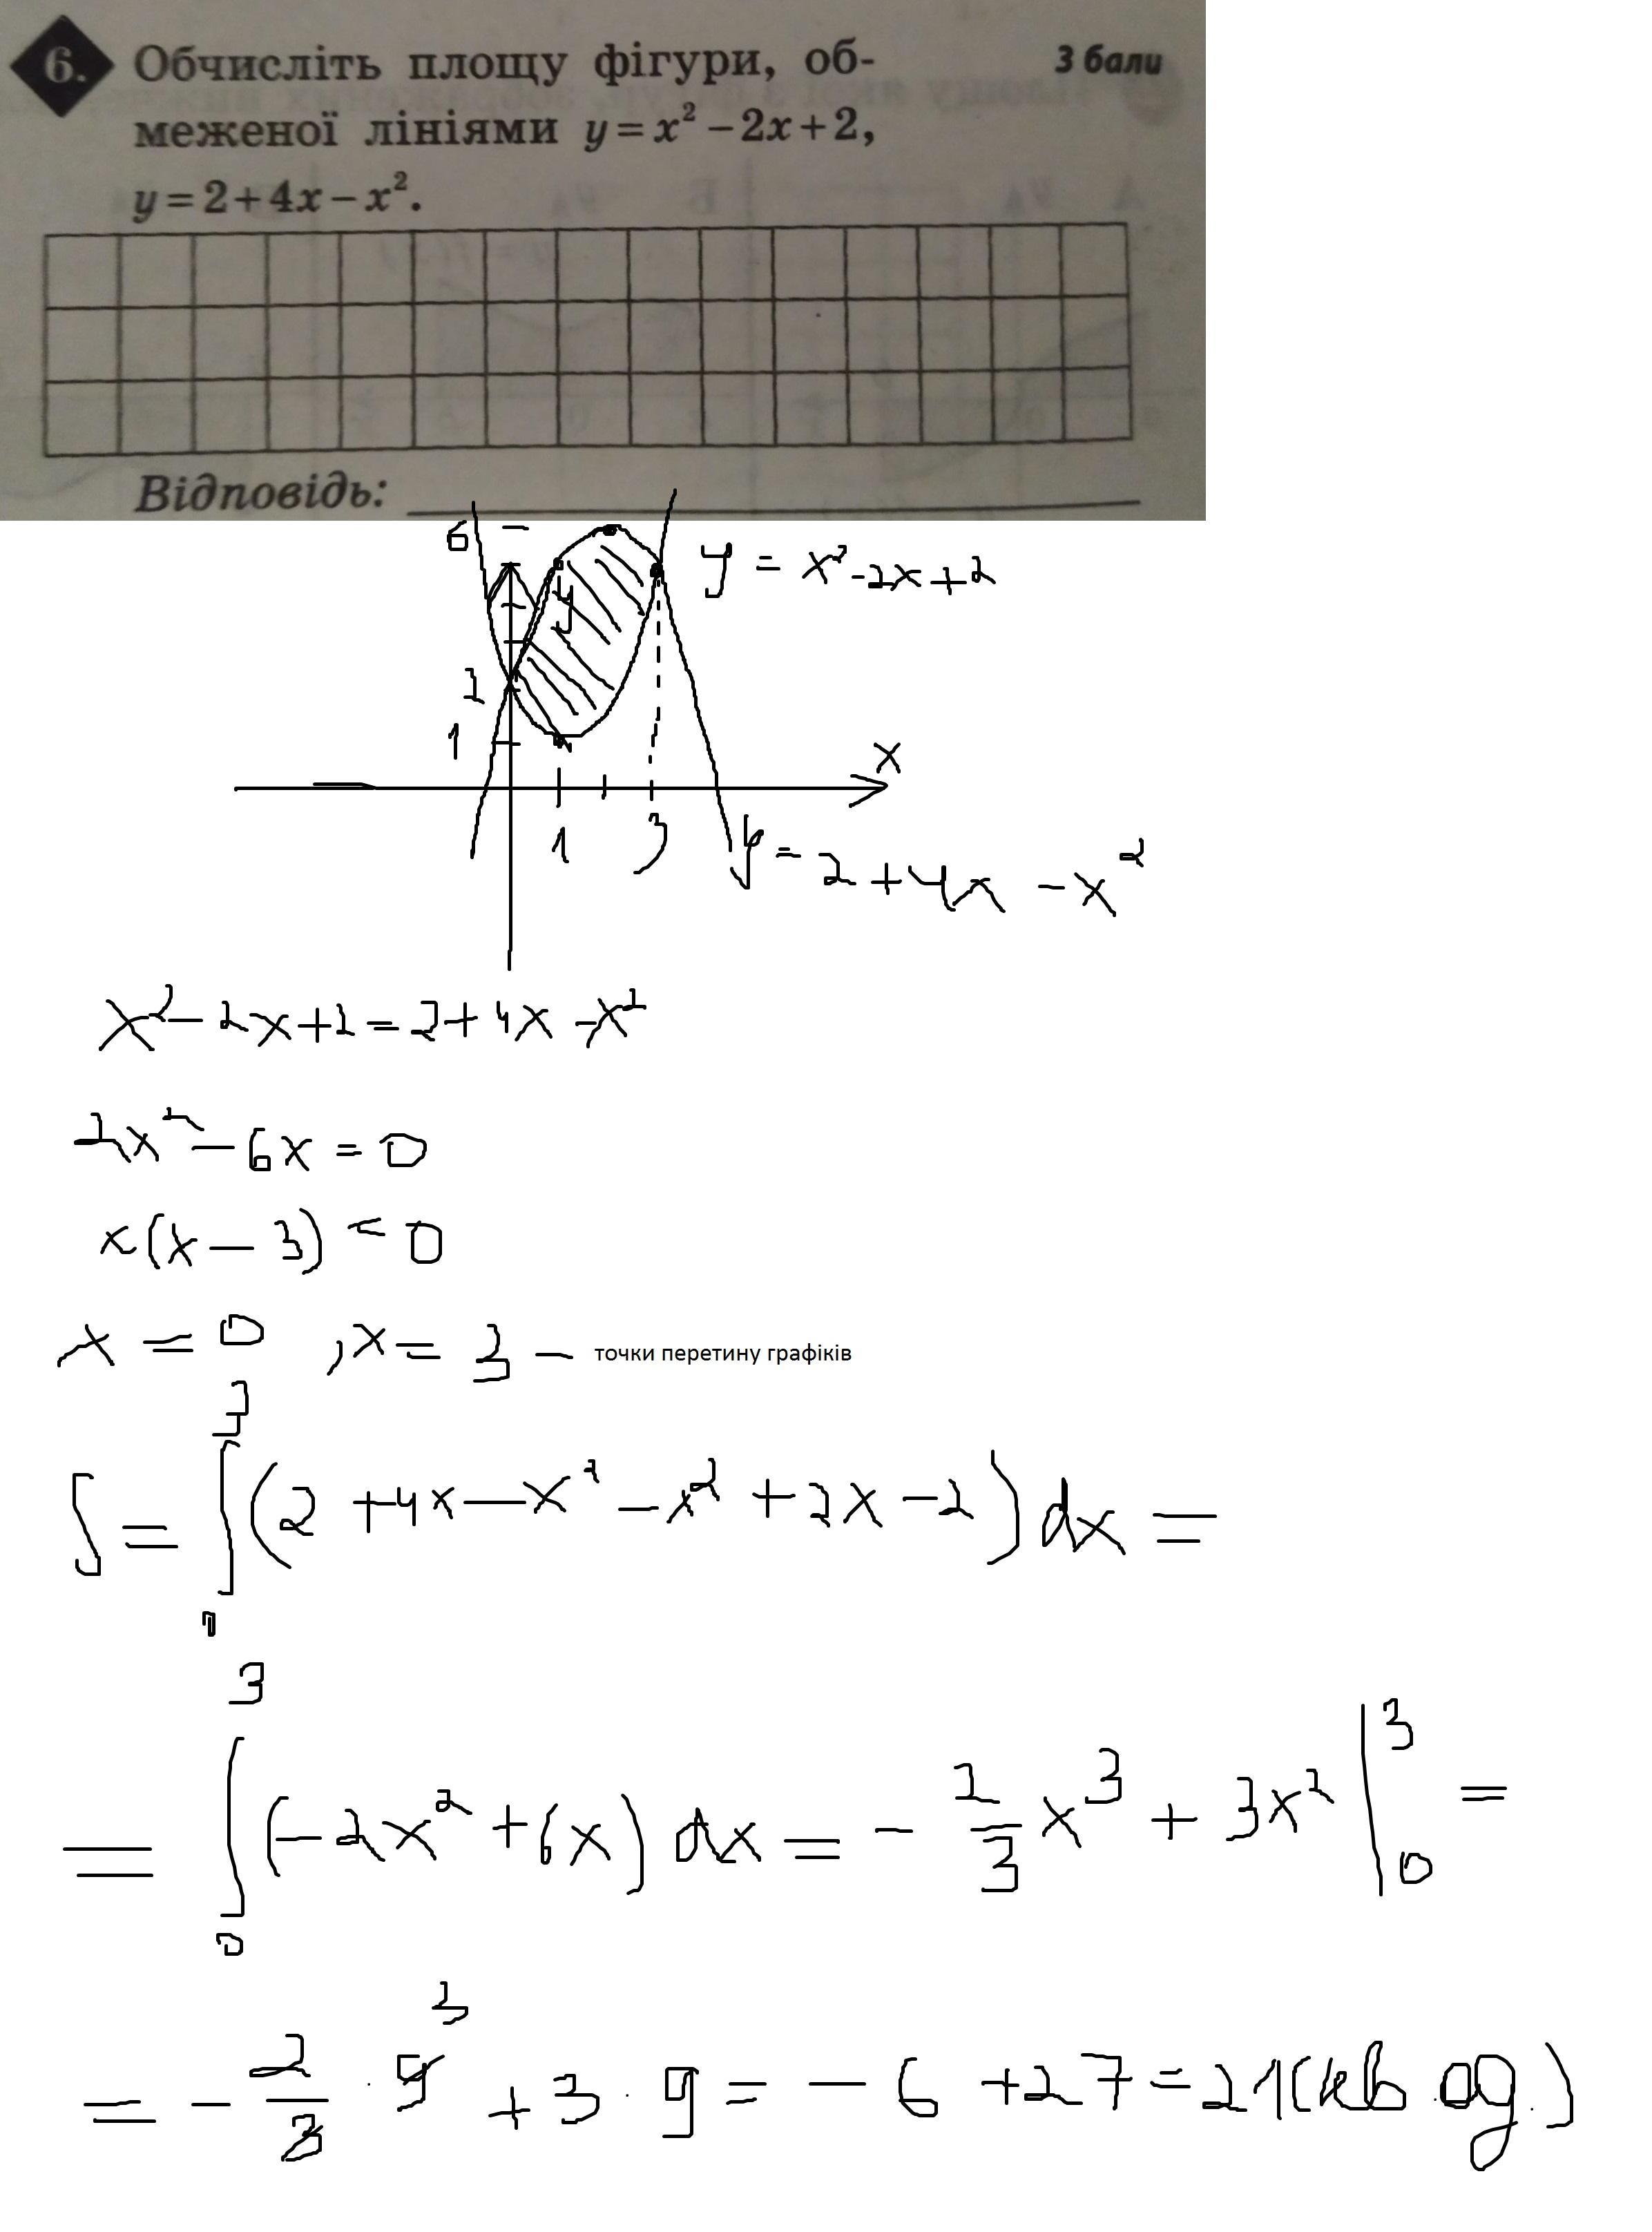 6. Обчисліть площу фігури, об- 3 бали
меженої лініями y = x² – 2x + 2,
y = 2 + 4x – x².
Відповідь:
6
y = x² - 2x + 2
y
2
1
x
1 3
y = 2 + 4x - x²
x² - 2x + 2 = 2 + 4x - x²
2x² - 6x = 0
x(x - 3) = 0
x = 0 , x = 3 - точки перетину графіків
3
S = ∫(2 + 4x - x² - x² + 2x - 2) dx =
0
3
= ∫(-2x² + 6x) dx = - 2/3 x³ + 3x² |³₀ =
0
3
= - 2/3 · 9 + 3 · 9 = - 6 + 27 = 21 (кв од.)